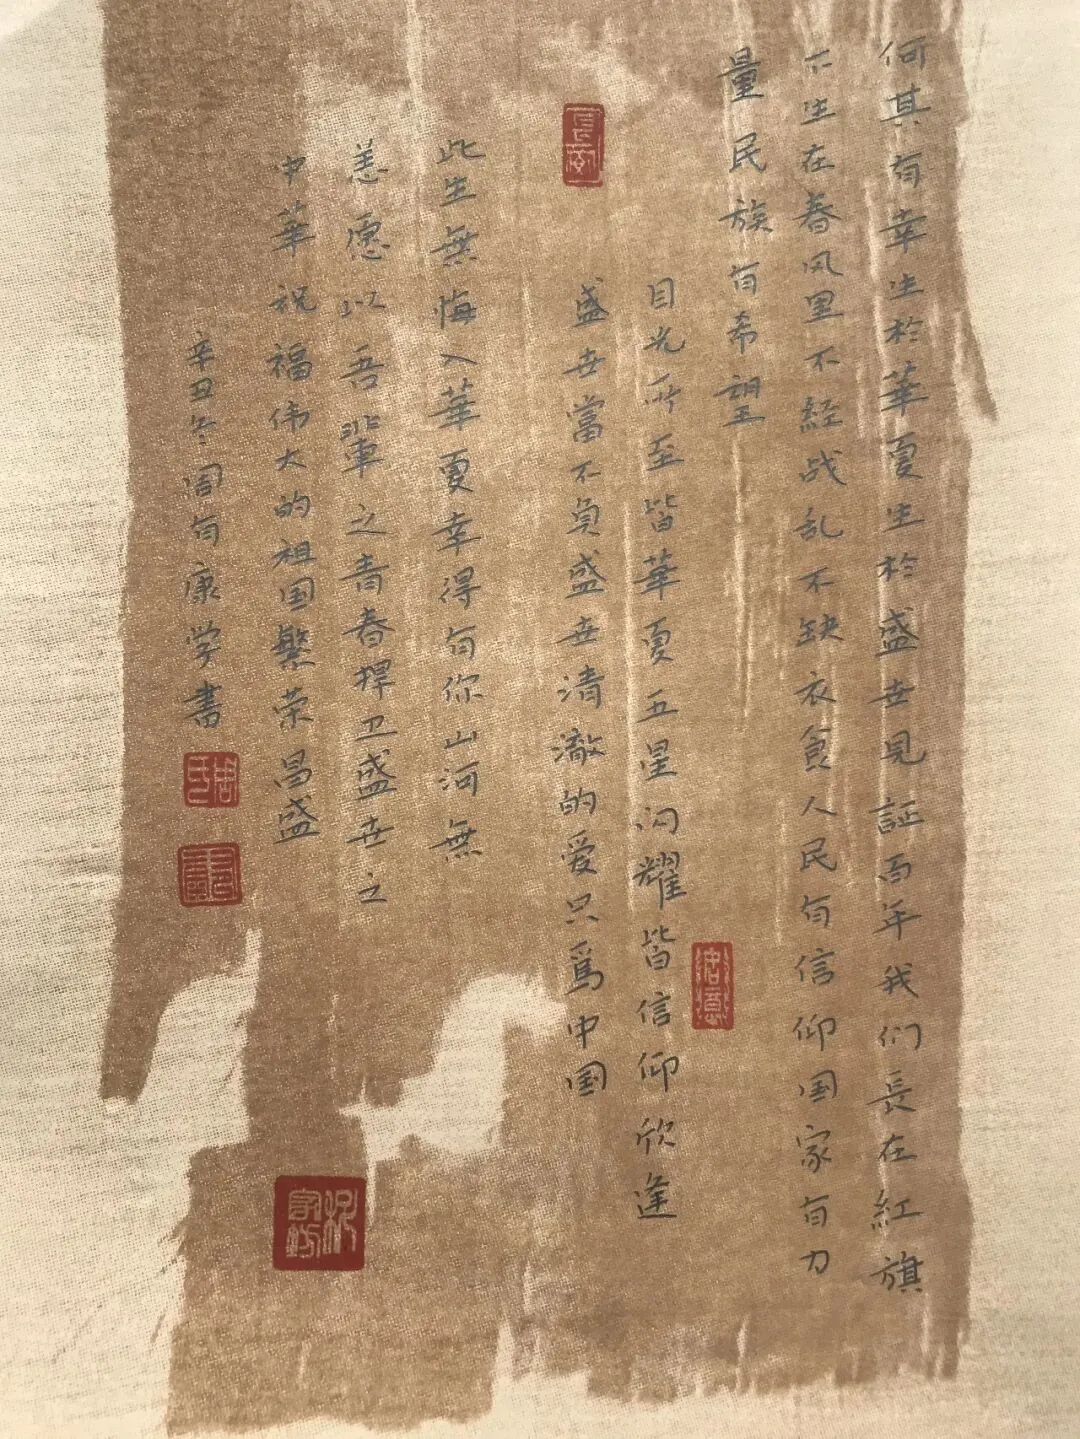 何其有幸生於華夏生於盛世見証百年我们長在紅旗
下生在春风里不经战乱不缺衣食人民有信仰国家有力
量民族有希望
目光所至皆華夏五星闪耀皆信仰欣逢
盛世當不負盛世清澈的爱只為中国
此生無悔入華夏幸得有你山河無
恙愿以吾輩之青春捍卫盛世之
中華祝福伟大的祖国繁荣昌盛
辛丑冬周有康学書